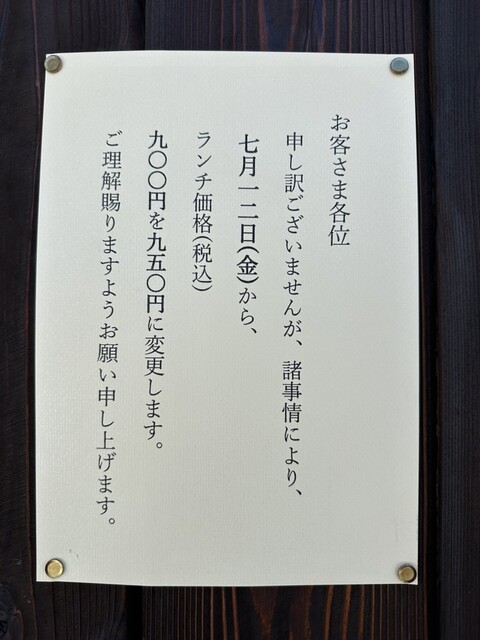 お客さま各位
申し訳ございませんが、諸事情により、
七月一二日(金)から、
ランチ価格(税込)
九〇〇円を九五〇円に変更します。
ご理解賜りますようお願い申し上げます。